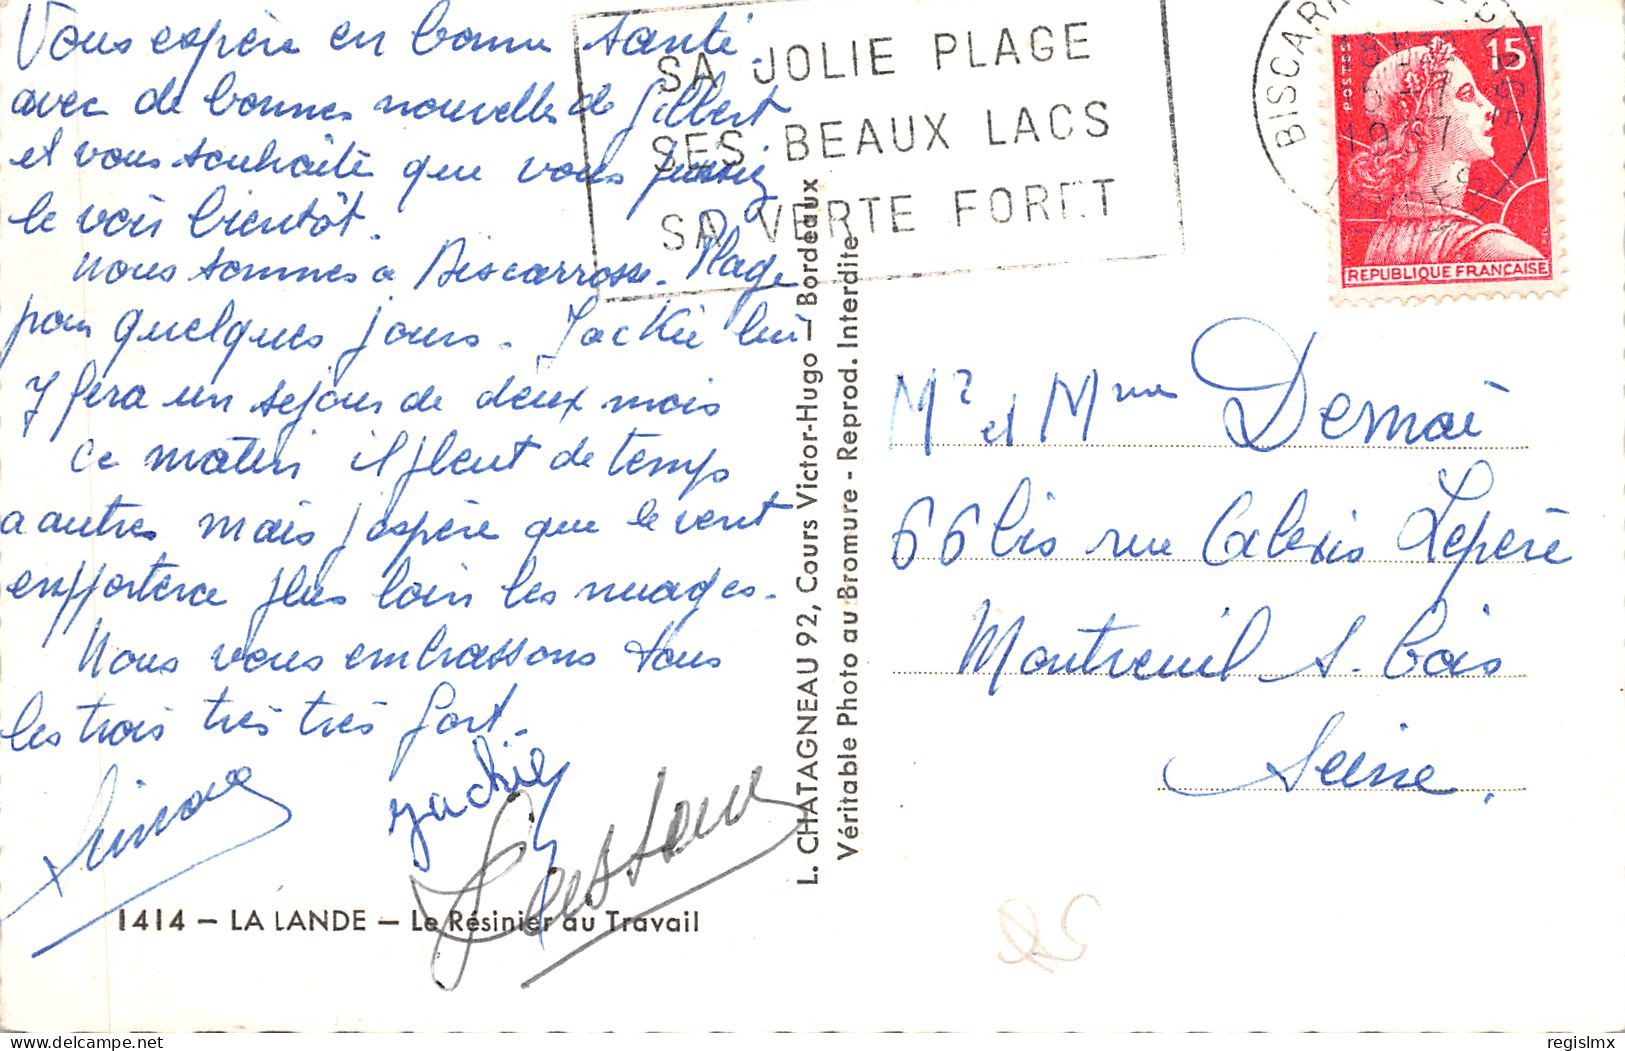 Vous espère en bonne santé
avec de bonnes nouvelles de Gilbert
et vous souhaite que vous puissiez
le voir bientôt.
Nous sommes a Biscarrosse-Plage
pour quelques jours. Jackie lui
y fera un sejour de deux mois
ce matin il pleut de temps
a autres mais j'espère que le vent
emportera plus loin les nuages.
Nous vous embrassons tous
les trois très très fort.
Simone
Jackie
1414 — LA LANDE — Le Résinier au Travail
L. CHATAGNEAU 92, Cours Victor-Hugo — Bordeaux
Véritable Photo au Bromure - Reprod. Interdite
SA JOLIE PLAGE
SES BEAUX LACS
SA VERTE FORET
18H
5-7
1957
POSTES
15F
REPUBLIQUE FRANÇAISE
Mr et Mme Demai
66 bis rue Alexis Lepère
Montreuil s. bois
Seine.
regislmx